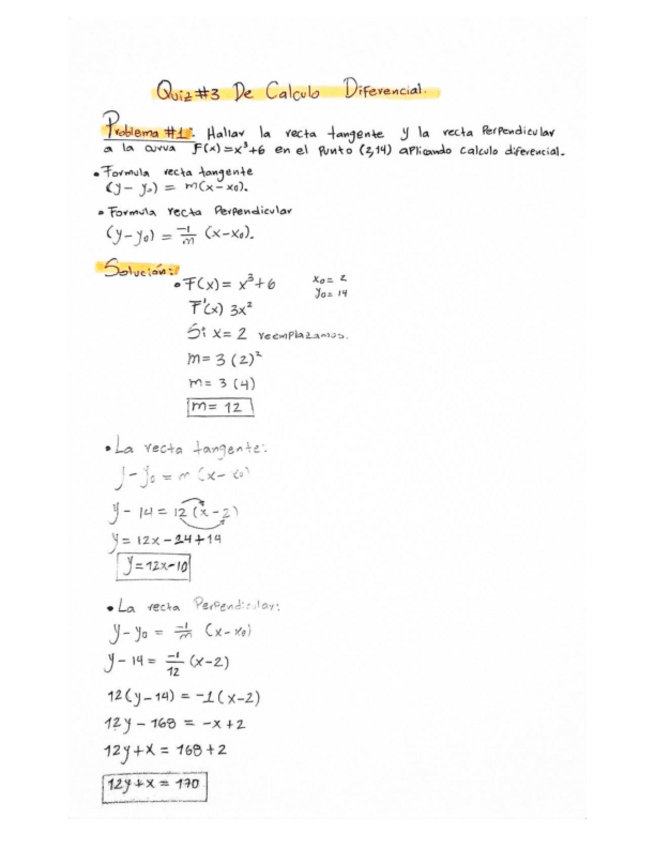 Quiz#3 De Calculo Diferencial.
Problema #1: Hallar la recta tangente y la recta Perpendicular
a la curva F(x)=x³+6 en el Punto (2,14) aplicando calculo diferencial.
• Formula recta tangente
(y-y₀) = m(x-x₀).
• Formula recta Perpendicular
(y-y₀) = -1/m (x-x₀).
Solución:
• F(x) = x³+6
x₀= 2
y₀= 14
F'(x) 3x²
Si x= 2 reemplazamos.
m= 3 (2)²
m= 3 (4)
m= 12
• La recta tangente:
y-y₀ = m (x-x₀)
y- 14 = 12 (x-2)
y= 12x-24+14
y=12x-10
• La recta Perpendicular:
y-y₀ = -1/m (x-x₀)
y-14 = -1/12 (x-2)
12(y-14) = -1(x-2)
12y-168 = -x+2
12y+x = 168+2
12y+x = 170